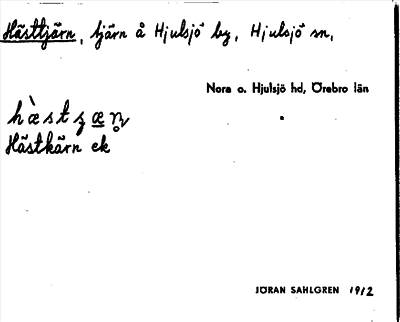 Hästtjärn, tjärn å Hjulsjö by, Hjulsjö sn,
Nora o. Hjulsjö hd, Örebro län
Hästkärn ek
JÖRAN SAHLGREN 1912